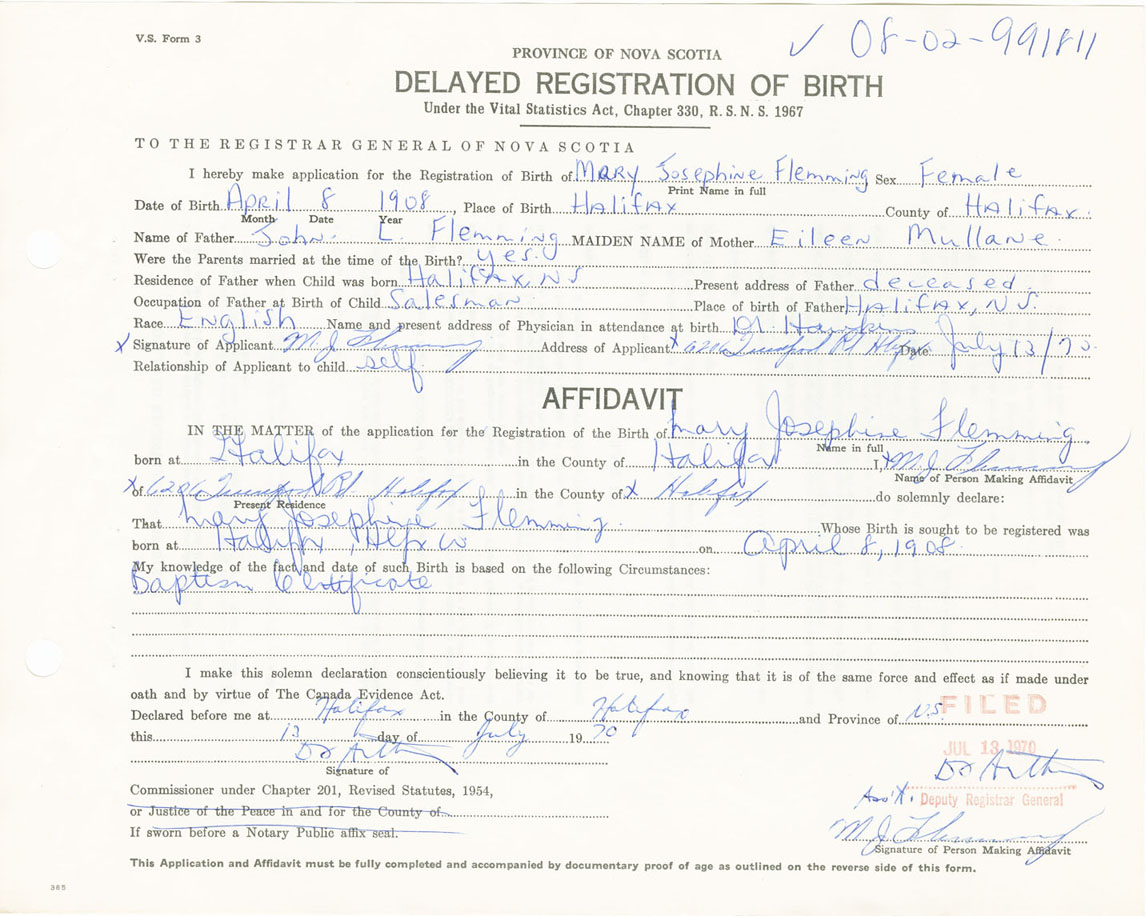 V.S. Form 3
✓ 08-02-991811
PROVINCE OF NOVA SCOTIA
DELAYED REGISTRATION OF BIRTH
Under the Vital Statistics Act, Chapter 330, R.S.N.S. 1967
TO THE REGISTRAR GENERAL OF NOVA SCOTIA
I hereby make application for the Registration of Birth of MARY Josephine Flemming Sex Female
Print Name in full
Date of Birth April 8 1908, Place of Birth Halifax County of Halifax.
Month Date Year
Name of Father John L. Flemming MAIDEN NAME of Mother Eileen Mullane.
Were the Parents married at the time of the Birth? yes.
Residence of Father when Child was born Halifax, NS Present address of Father deceased.
Occupation of Father at Birth of Child Salesman Place of birth of Father Halifax, NS.
Race English Name and present address of Physician in attendance at birth Dr. Hawkins
X Signature of Applicant M. J. Flemming Address of Applicant X Rd Hlfx Date July 13/70
Relationship of Applicant to child self
AFFIDAVIT
IN THE MATTER of the application for the Registration of the Birth of Mary Josephine Flemming,
Name in full
born at Halifax in the County of Halifax I, X M. J. Flemming
Name of Person Making Affidavit
X of Rd. Halifax in the County of X Halifax do solemnly declare:
Present Residence
That Mary Josephine Flemming. Whose Birth is sought to be registered was
born at Halifax, Hlfx Co on April 8, 1908.
My knowledge of the fact and date of such Birth is based on the following Circumstances:
Baptism Certificate
I make this solemn declaration conscientiously believing it to be true, and knowing that it is of the same force and effect as if made under
oath and by virtue of The Canada Evidence Act.
Declared before me at Halifax in the County of Halifax and Province of N.S.
FILED
this 13 day of July 1970
JUL 13 1970
Signature of
Commissioner under Chapter 201, Revised Statutes, 1954,
Ass't. Deputy Registrar General
or Justice of the Peace in and for the County of
If sworn before a Notary Public affix seal.
M. J. Flemming
Signature of Person Making Affidavit
This Application and Affidavit must be fully completed and accompanied by documentary proof of age as outlined on the reverse side of this form.
385